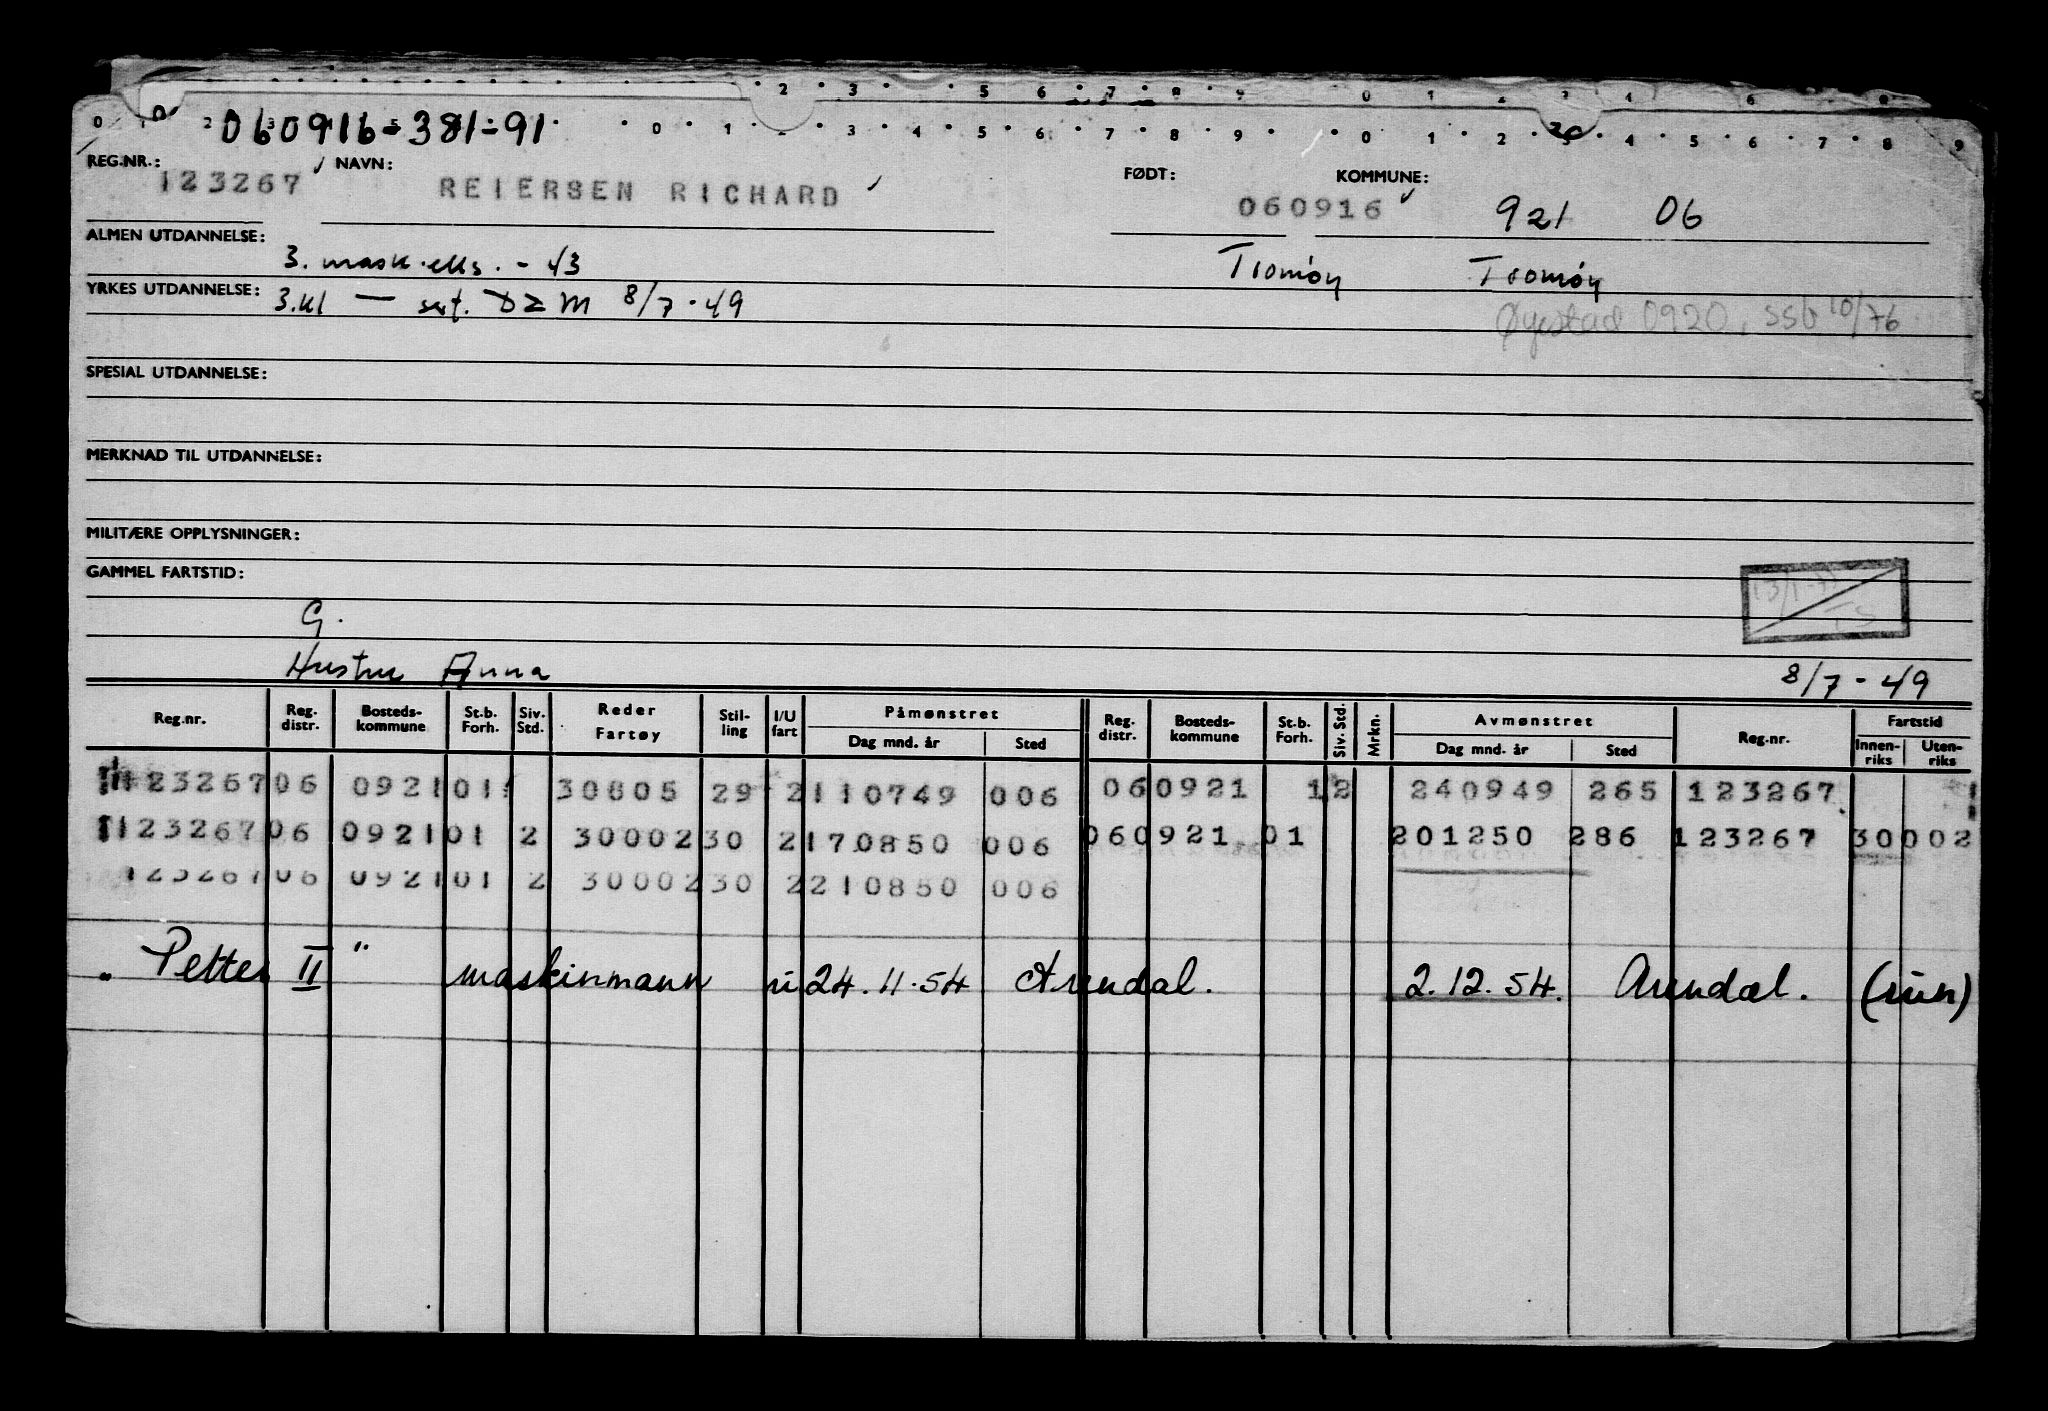 2 3 5 6 7 8 9 0 1 2 3 4 6 8
0 1 2 3 5 0 1 2 3 4 5 6 7 8 9 0 1 2 3 4 5 6 7 8 9
060916-381-91
REG.NR.: 123267 NAVN: REIERSEN RICHARD FØDT: 060916 KOMMUNE: 921 06
ALMEN UTDANNELSE: 3. mask.eks. - 43 Tromøy Tromøy
YRKES UTDANNELSE: 3.kl — sert. D2M 8/7-49 Øyestad 0920, SSB 10/76
SPESIAL UTDANNELSE:
MERKNAD TIL UTDANNELSE:
MILITÆRE OPPLYSNINGER:
GAMMEL FARTSTID:
G.
Hustru Anna 8/7-49
Reg.nr. Reg. distr. Bosteds-kommune St.b. Forh. Siv. Std. Reder Fartøy Stil-ling I/U fart Påmønstret Dag mnd. år Sted Reg. distr. Bosteds-kommune St.b. Forh. Siv. Std. Mrkn. Avmønstret Dag mnd. år Sted Reg.nr. Fartstid Innen-riks Uten-riks
123267 06 0921 01 30805 29 2 110749 006 06 0921 1 2 240949 265 123267
123267 06 0921 01 2 30002 30 2 170850 006 06 0921 01 201250 286 123267 30002
123267 06 0921 01 2 30002 30 2 210850 006
"Petter II" maskinmann u 24.11.54 Arendal. 2.12.54. Arendal.